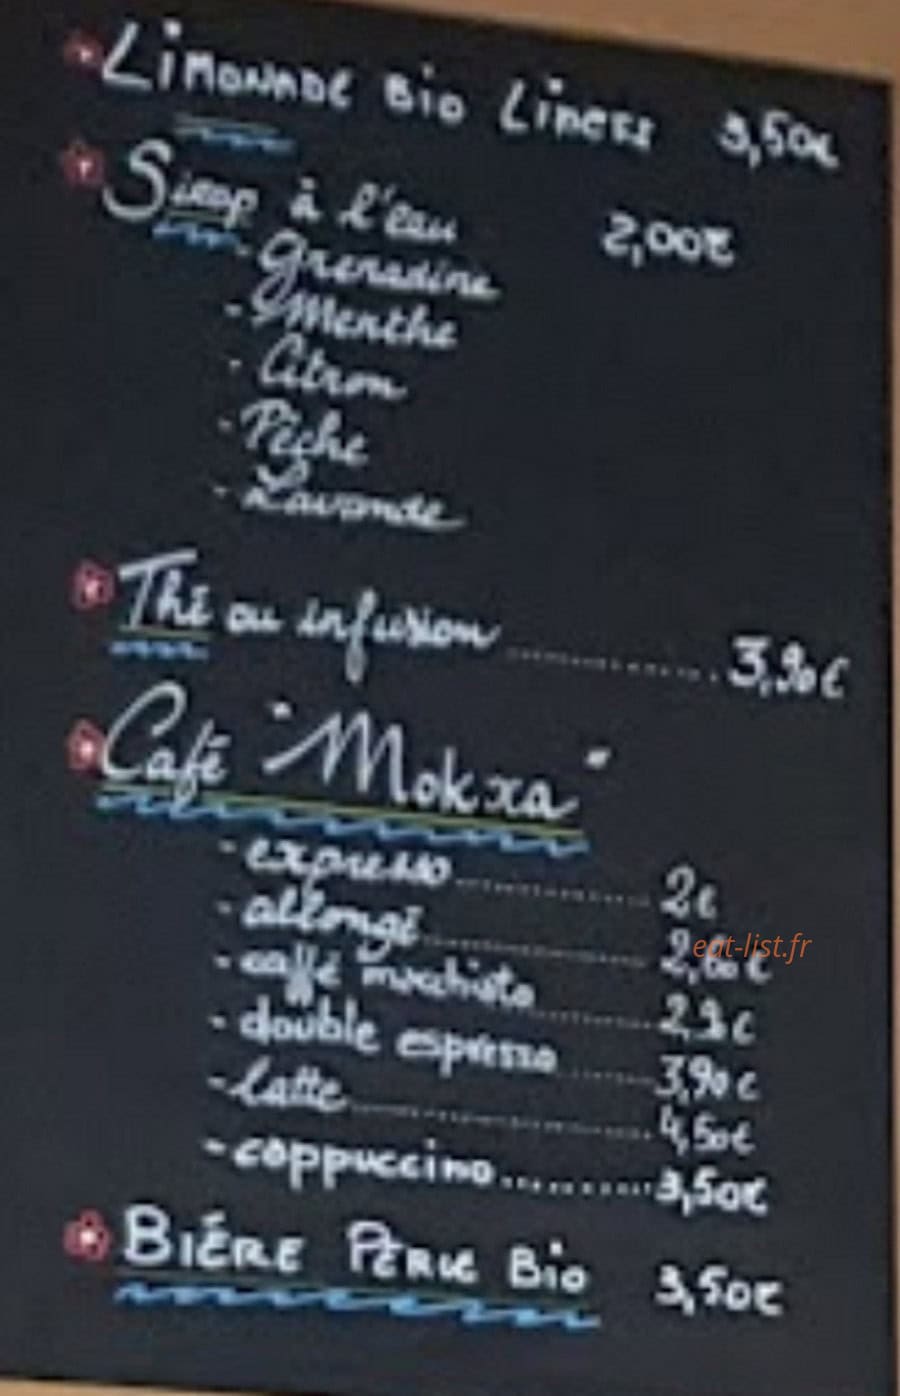 Limonade Bio Liness 3,50€
Sirop à l'eau 2,00€
- Grenadine
- Menthe
- Citron
- Pêche
- Lavande
Thé ou infusion .............. 3,90€
Café "Mokxa"
- expresso .............. 2€
- allongé .............. €
eat-list.fr
- caffé macchiato .......... 2,90€
- double espresso ....... 3,90€
- latte .............. 4,50€
- cappuccino .......... 3,50€
BIÈRE Bio 3,50€